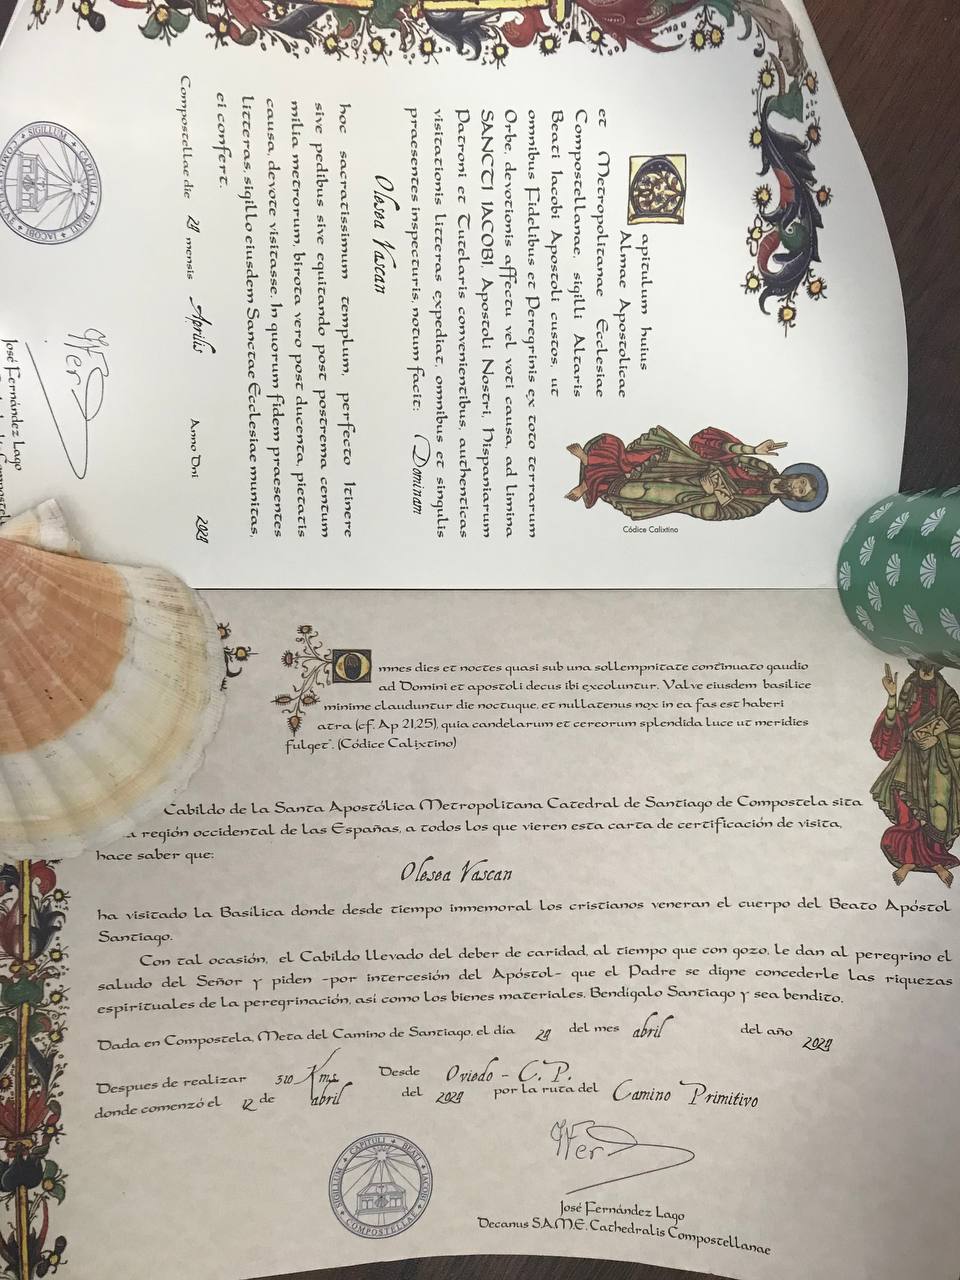 apitulum huius
Almae Apostolicae
et Metropolitanae Ecclesiae
Compostellanae, sigilli Altaris
Beati Iacobi Apostoli custos, ut
omnibus Fidelibus et Peregrinis ex toto terrarum
Orbe, devotionis affectu vel voti causa, ad limina
SANCTI IACOBI, Apostoli Nostri, Hispaniarum
Patroni et Tutelaris convenientibus, authenticas
visitationis litteras expediat, omnibus et singulis
praesentes inspecturis, notum facit: Dominam
Olesea Vascan
hoc sacratissimum templum, perfecto Itinere
sive pedibus sive equitando post postrema centum
milia metrorum, birota vero post ducenta, pietatis
causa, devote visitasse. In quorum fidem praesentes
litteras, sigillo eiusdem Sanctae Ecclesiae munitas,
ei confert.
Compostellae die 29 mensis Aprilis Anno Dni 2029
SIGILLUM CAPITULI BEATI IACOBI COMPOSTELLAE
José Fernández Lago
Códice Calixtino
mnes dies et noctes quasi sub una sollempnitate continuato gaudio
ad Domini et apostoli decus ibi excoluntur. Valve eiusdem basilice
minime clauduntur die noctuque, et nullatenus nox in ea fas est haberi
atra (cf. Ap 21,25), quia candelarum et cereorum splendida luce ut meridies
fulget". (Códice Calixtino)
Cabildo de la Santa Apostólica Metropolitana Catedral de Santiago de Compostela sita
región occidental de las Españas, a todos los que vieren esta carta de certificación de visita,
hace saber que:
Olesea Vascan
ha visitado la Basílica donde desde tiempo inmemoral los cristianos veneran el cuerpo del Beato Apóstol
Santiago.
Con tal ocasión, el Cabildo llevado del deber de caridad, al tiempo que con gozo, le dan al peregrino el
saludo del Señor y piden -por intercesión del Apóstol- que el Padre se digne concederle las riquezas
espirituales de la peregrinación, así como los bienes materiales. Bendígalo Santiago y sea bendito.
Dada en Compostela, Meta del Camino de Santiago, el día 29 del mes abril del año 2029
Despues de realizar 310 Kms Desde Oviedo - C. P.
donde comenzó el 12 de abril del 2029 por la ruta del Camino Primitivo
SIGILLUM CAPITULI BEATI IACOBI COMPOSTELLAE
José Fernández Lago
Decanus S.A.M.E. Cathedralis Compostellanae